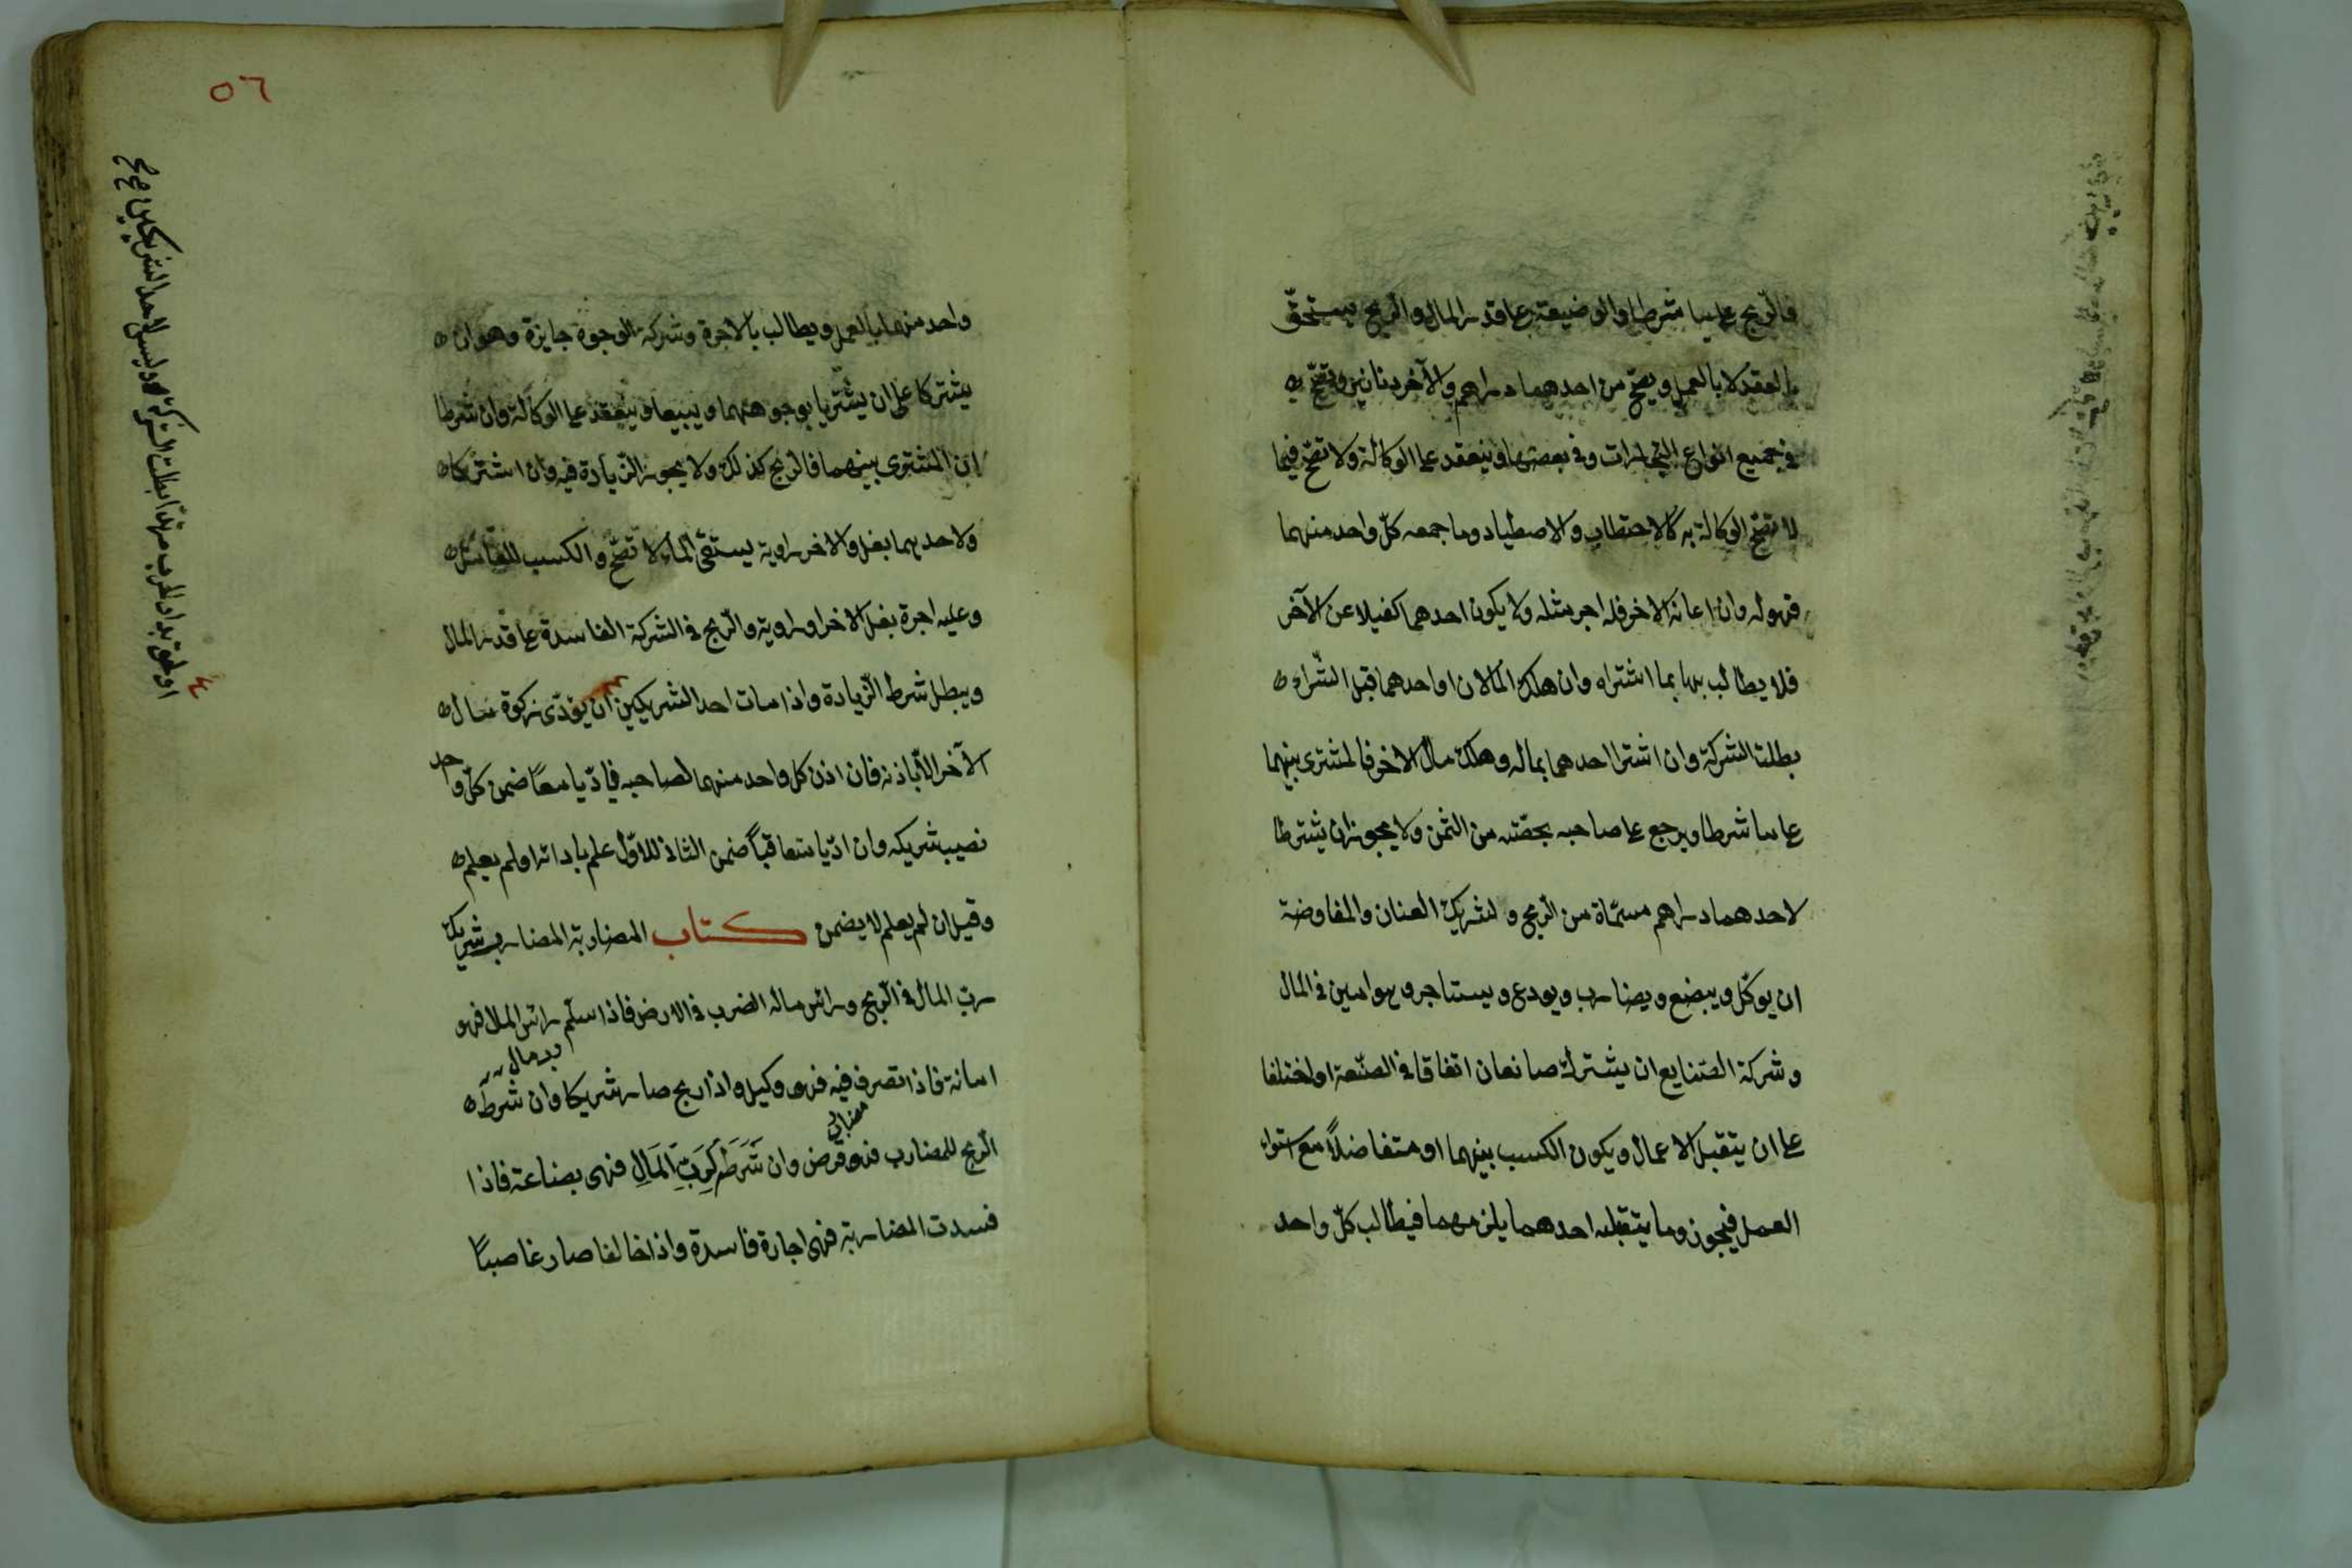 فالربح على ما شرطا والوضيعة على قدر المال والربح يستحق
بالعقد لا بالعمل ويصحّ من احدهما دراهم والآخر دنانير وتصحّ
في جميع انواع التجارات وفي بعضها وينعقد على الوكالة ولا تصحّ فيما
لا تصحّ الوكالة به كالاحتطاب والاصطياد وما جمعه كلّ واحد منهما
فهو له وان اعانه الاخر فله اجر مثله ولا يكون احدهما كفيلا عن الآخر
فلا يطالب بها بما اشتراه وان هلك المالان او احدهما قبل الشّراء
بطلت الشركة وان اشترا احدهما بماله وهلك مال الاخر فالمشترى بينهما
على ما شرطا ويرجع على صاحبه بحصّته من الثمن ولا يجوز ان يشترطا
لاحدهما دراهم مسمّاة من الربح ولشريك العنان والمفاوضة
ان يوكّل ويبضع ويضارب ويودع ويستاجر وهو امين في المال
وشركة الصّنايع ان يشترك صانعان اتفاقا في الصّنعة او اختلفا
على ان يتقبل الاعمال ويكون الكسب بينهما او متفاضلاً مع استواء
العمل فيجوز وما يتقبله احدهما يلزمهما فيطالب كلّ واحد
٥٦
واحد منهما بالعمل ويطالب بالاجرة وشركة الوجوه جايزة وهو ان
يشتركا على ان يشتريا بوجوههما ويبيعا وينعقد على الوكالة وان شرطا
ان المشترى بينهما فالربح كذلك ولا يجوز الزيادة فيه وان اشتركا
ولاحدهما بغل والاخر راوية يستقى الماء لا تصحّ والكسب للعامل
وعليه اجرة بغل الاخر او راوية والربح في الشركة الفاسدة على قدر المال
ويبطل شرط الزيادة واذا مات احد الشريكين ان يؤدّى زكوة مال
الآخر الّا باذنه فان اذن كل واحد منهما لصاحبه فادّيا معاً ضمن كلّ واحد
نصيب شريكه وان ادّيا متعاقباً ضمن الثاني للاوّل علم بادائه او لم يعلم
وقيل ان لم يعلم لا يضمن كتاب المضاربة المضارب شريك
ربّ المال في الربح وراس ماله الضرب في الارض فاذا سلّم راس المال فهو
امانة فاذا تصرف فيه فهو وكيل واذا ربح صار شريكا وان شرط
الربح للمضارب فهو قرض وان شَرَطَ لِرَبِّ المَالِ فهى بضاعة فاذا
فسدت المضاربة فهى اجارة فاسدة واذا خالفا صار غاصباً
او لحق بدار الحرب مرتدا بطلت الشركة وليس لاحد الشريكين صح